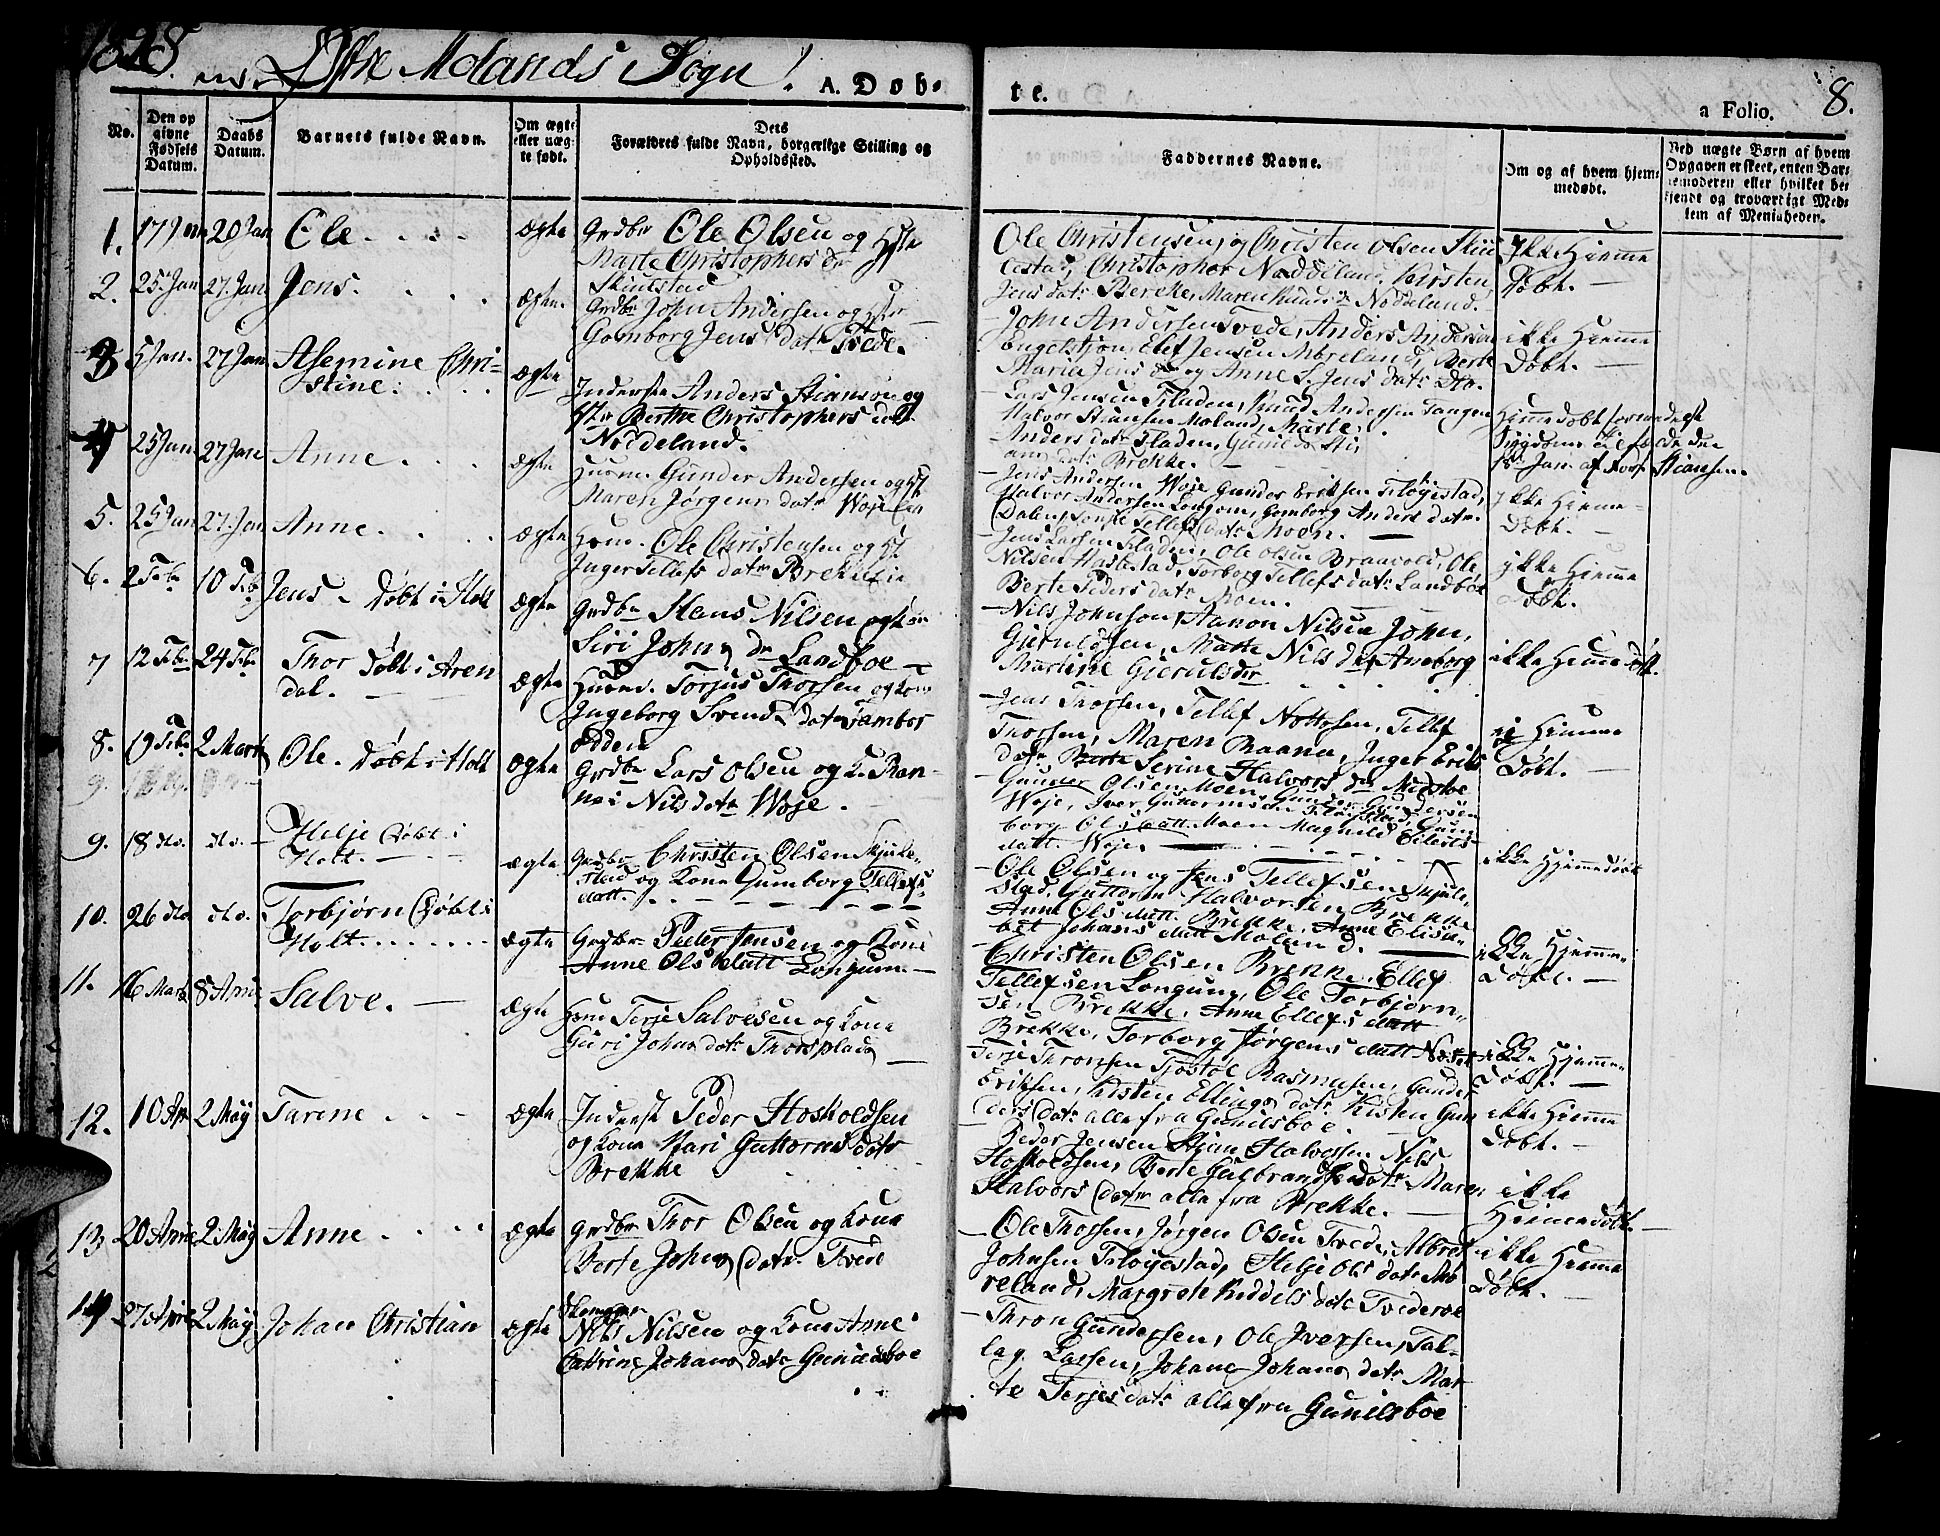 1828.
Østre Molands Sogn!
A. Døb-
te.
a Folio.
8.
No.
Den op
givne
Fødsels
Datum.
Daabs
Datum.
Barnets fulde Navn.
Om ægte
eller uæg-
te født.
Dets
Forældres fulde Navn, borgerlige Stilling og
Opholdssted.
Faddernes Navne.
Om og af hvem hjem-
medøbt.
Ved uægte Børn af hvem
Opgaven er skeet, enten Bar-
nemoderen eller hvilket be-
kjendt og troværdigt Med-
lem af Menigheden.
1. 17 Jan 20 Jan Ole ægte Grdbr Ole Olsen og Hstr
Marte Christophers dr
Ole Christensen, og Christen Olsen Skiu
lestad, Christopher Naddeland, Kirsten
Jens datr Brekke, Maren Knuds Naddeland.
Ikke Hiemme
Døbt.
2. 25 Jan 27 Jan Jens. ægte.
Grdbr John Andersen og
Gomborg Jens datr Tvede.
John Andersen Tvede, Anders Andersen
Engelstjon, Elef Jensen Møreland, Berte
Maria Jens dr og Anne L. Jens datr
ikke Hiemme
Døbt.
3 5 Jan. 27 Jan Asemine Chri-
stine. ægte
Inderste Anders Stianson og
Hstr Berthe Christophers datr
Naddeland.
Lars Jensen Fladen, Knud Andersen Tangen
Halvor Stiansen Moland, Marte
Anders datr Fladen, Gunild Sti
ans datr Brekke.
Hiemmedøbt formedelst
Sygdom
18 Jan. af Stiansen.
4 25 Jan 27 Jan Anne ægte
Huusm. Gunder Andersen og H
Maren Jørgens datr Woje
Jens Andersen Woje, Gunder Eriksen Fløgestad,
Halvor Andersen Longom, Gomborg Anders datr
Dalen, Tellefs datr Moen.
ikke Hiemme
Døbt.
5. 25 Jan 27 Jan Anne. ægte
Huusm. Ole Christensen og H
Inger Tellefs datr Brekke
Jens Larsen Fladen, Ole Olsen Braavold, Ole
Nilsen Hastestad, Torborg Tellefs datr Landbøe
Berte Peders datr Moen.
ikke Hiemme
Døbt.
6. 2 Febr 10 Feb Jens - Døbt i Holt ægte
Grdbr Hans Nilsen og Kone
Siri Johns dr Landboe
Nils Johnson, Aanon Nilsen, John
Gieruldsen, Marte Nils dr Aneborg
Martine Gierulsdr
ikke Hiemmedøbt.
7 12 Febr 24 Febr Thor Døbt i Aren
dal. ægte
Huusm. Torjus Thorsen og Kone
Ingeborg Svends datr Tambor
Odden
Jens Thorsen, Tellef Nottosen, Tellef
Thorsen, Maren Raana, Inger Eriks
datr Serine Halvors dr
ei Hiemme
Døbt.
8. 19 Febr 2 Marts Ole. Døbt i Holt ægte
Grdbr Lars Olsen og K. Ran-
nei Nils datr Woje.
Gunder Olsen Moen, Gunder Gundersen
Woje, Iver Guttormsen Fløgstad, Gun
borg Ols datt. Moen Magnild Eilerts-
datt. Woje.
9.
9. 18 do. do. Helje Døbt i
Holt. ægte
Grdbr Christen Olsen Skjule-
stad og Kone Gumborg Tellefs
datt.
Ole Olsen og Jens Tellefsen Skjule-
stad, Guttorm Halvorsen Brekke
Anne Ols datt. Brekke, Anne Elisa-
bet Johans datt Moland.
ikke Hjemmedøbt
10. 26 do. do. Torbjørn Døbt i
Holt. ægte
Grdbr. Peder Jensen og Kone
Anne Ols datt Longum.
Christen Olsen Brekke, Ellef
Tellefsen Longum, Ole Torbjørn-
sen Brekke, Anne Ellefs datt
Brekke, Torborg Jørgens datt
ikke Hjemme-
døbt.
11. 16 Marts 8 April Salve. ægte
Huusm Terje Salvesen og Kone
Guri Johns datr Thorsplads
Terje Thronsen Tjostol Rasmusen, Gunder
Eriksen, Kirsten Ellings datr Kisten Gun
ders datr alle fra Gunilsboe.
ikke Hjemme-
døbt.
12. 10 Apr 2 May Tarene ægte
Inderst Peder Hoskoldsen
og Kone Kari Guttorms datr
Brekke
Peder Jensen Stian Halvorsen Nils
Hoskoldsen, Berte Gulbrands datr Maren
Halvors datr alle fra Brekke.
ikke Hiemme
Døbt.
13 20 April 2 May Anne ægte
Grdbr Thor Olsen og Kone
Berte Johns datr. Tvede
Ole Thorsen, Jørgen Olsen Tvede, Albret
Johnsen Fløgestad, Helje Ols datr Mø
reland, Margrete Kiddels datr Tvede
ikke
Hiemmedøbt.
14 27 April 2 May Johan Christian ægte
Nels Nilsen og Kone Anne
Catrine Johans datr Gunildsboe
Thron Gundersen, Ole Iversen, Tal-
lag Larsen, Johane Johans datr Mar
te Terjes datr alle fra Gunilsboe
ikke Hiemme
Døbt.